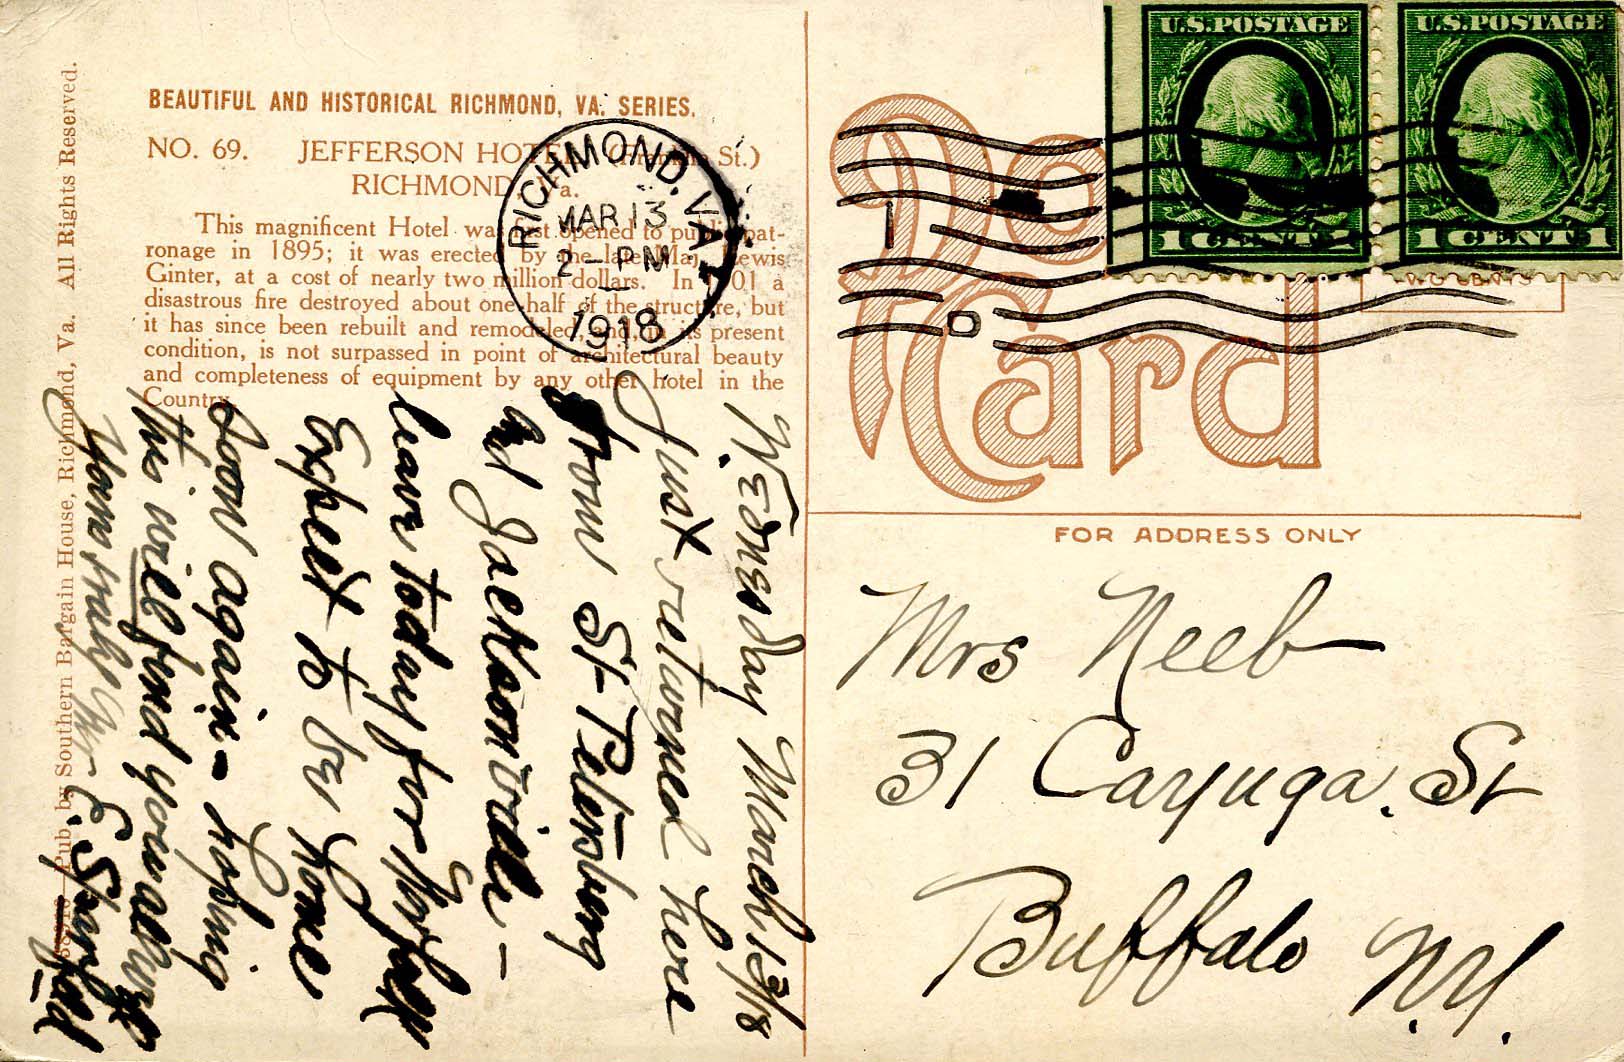 BEAUTIFUL AND HISTORICAL RICHMOND, VA. SERIES.
NO. 69. JEFFERSON HOTEL (Franklin St.)
RICHMOND, Va.
This magnificent Hotel was first opened to public pat-
ronage in 1895; it was erected by the late Maj. Lewis
Ginter, at a cost of nearly two million dollars. In 1901 a
disastrous fire destroyed about one-half of the structure, but
it has since been rebuilt and remodeled, and, in its present
condition, is not surpassed in point of architectural beauty
and completeness of equipment by any other hotel in the
Country.
Pub. by Southern Bargain House, Richmond, Va. All Rights Reserved.
RICHMOND, VA.
MAR 13
2 - PM
1918
Wednesday March 13/18
Just returned here
from St Petersburg
and Jacksonville -
leave today for Norfolk
Expect to be home
soon again - hoping
this will find you all well
Yours truly Mr E. Stanfield
U.S. POSTAGE
1 CENT 1
U.S. POSTAGE
1 CENT 1
Post
Card
FOR ADDRESS ONLY
Mrs Neeb
31 Cayuga. St
Buffalo N.Y.